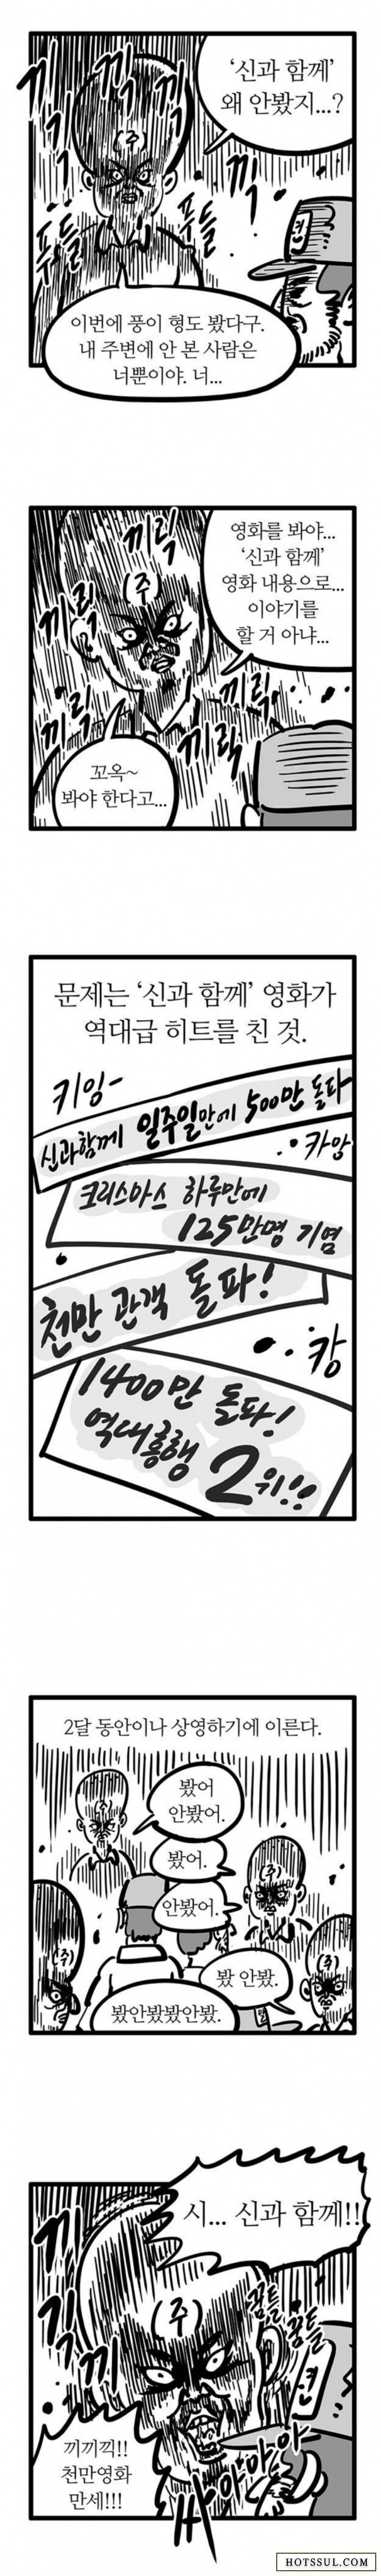 끼긱
끼긱
끼긱
끼긱
(주)
푸들
푸들
‘신과 함께’
왜 안봤지...?
이번에 풍이 형도 봤다구.
내 주변에 안 본 사람은
너뿐이야. 너...
끼릭
(주)
끼릭
끼릭
끼릭
끼릭
영화를 봐야...
‘신과 함께’
영화 내용으로...
이야기를
할 거 아냐...
꼬옥~
봐야 한다고...
문제는 ‘신과 함께’ 영화가
역대급 히트를 친 것.
키잉-
신과함께 일주일만에 500만 돌파
카앙
크리스마스 하루만에
125만명 기염
천만 관객 돌파!
캉
1400만 돌파!
역대흥행 2위!!
2달 동안이나 상영하기에 이른다.
봤어
안봤어.
봤어.
안봤어.
봤 안봤.
봤안봤봤안봤.
(주)
(주)
(주)
(주)
시... 신과 함께!!
(주)
꿈틀
꿈틀
끼끼끽!!
천만영화
만세!!!
HOTSSUL.COM